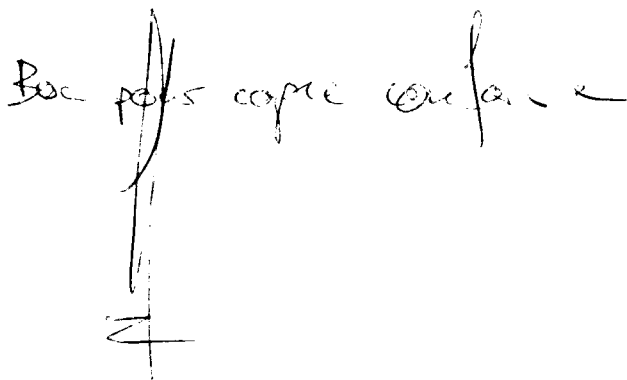 Bon pour copie conforme